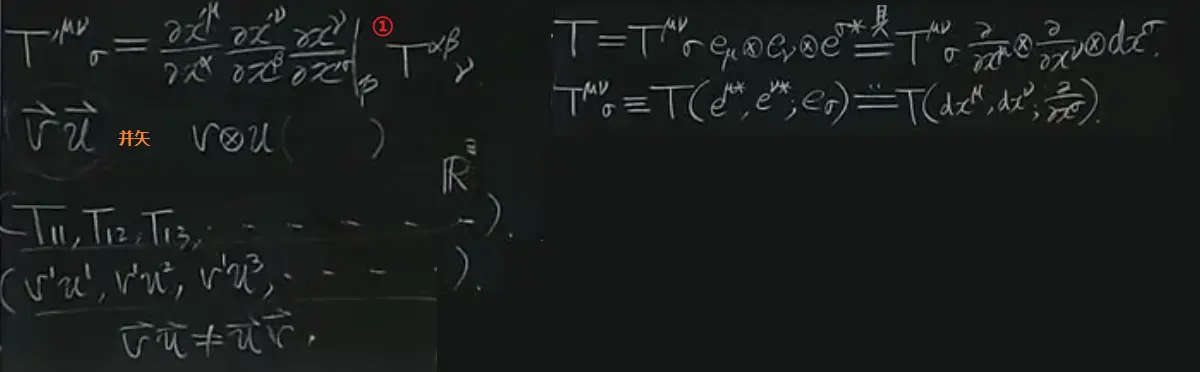 T'^{μν}_σ = ∂x'^μ/∂x^α ∂x'^ν/∂x^β ∂x^γ/∂x'^σ |_p ① T^{αβ}_γ
v⃗u⃗ 并矢 v⊗u( )
ℝ
(T₁₁, T₁₂, T₁₃, · - - - - - -).
(v¹u¹, v¹u², v¹u³, · - - - ·).
v⃗u⃗ ≠ u⃗v⃗.
T = T^{μν}_σ e_μ⊗e_ν⊗e^{σ*} 具= T^{μν}_σ ∂/∂x^μ⊗∂/∂x^ν⊗dx^σ.
T^{μν}_σ ≡ T(e^{μ*}, e^{ν*}; e_σ) = T(dx^μ, dx^ν; ∂/∂x^σ).